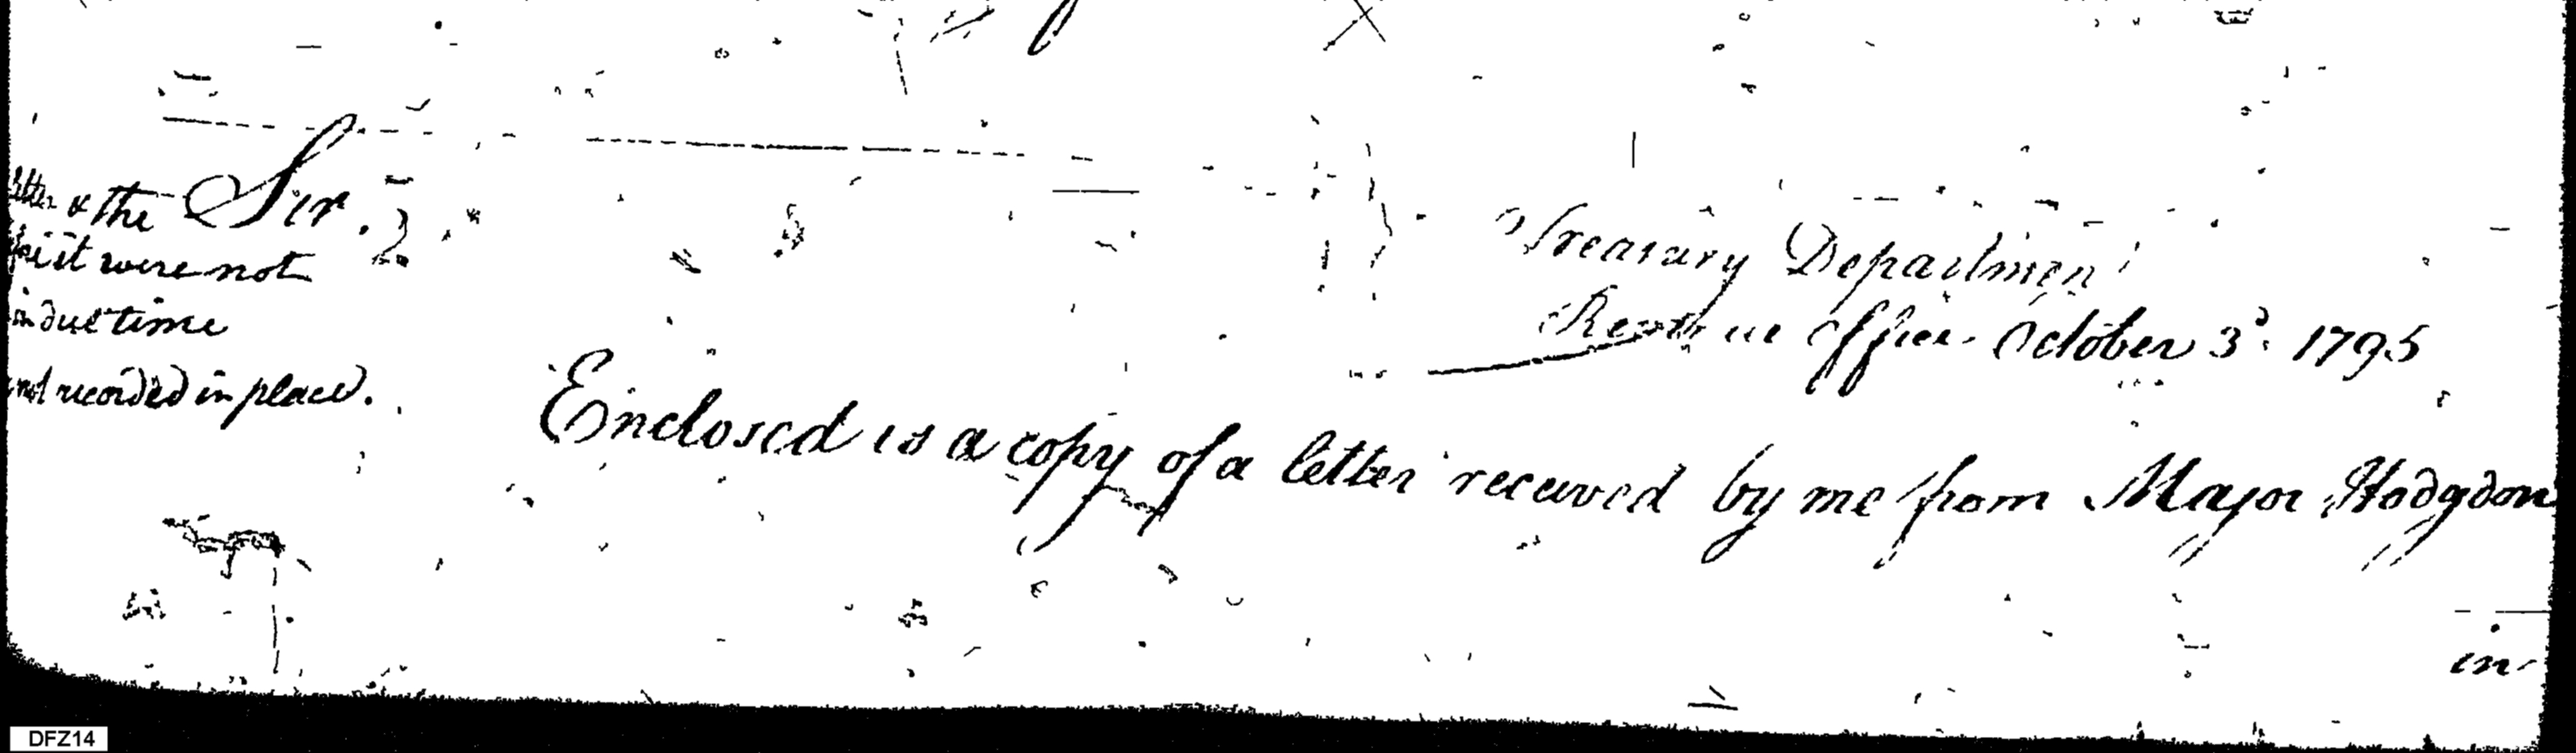 Treasury Department
Revenue Office October 3d. 1795
Sir.
letter & the
were not
in due time
and recorded in place.
Enclosed is a copy of a letter received by me from Major Hodgdon
in
DFZ14